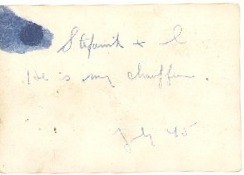 Stefanik + I
He is my chauffeur.
July 45